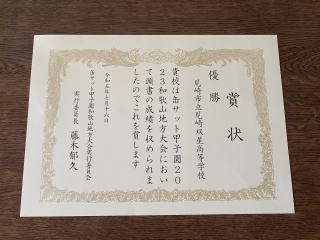 賞状
優勝
尼崎市立尼崎双星高等学校
貴校は缶サット甲子園20
23和歌山地方大会におい
て頭書の成績を収められま
したのでこれを賞します
令和五年七月十六日
缶サット甲子園和歌山地方大会実行委員会
実行委員長 藤木郁久